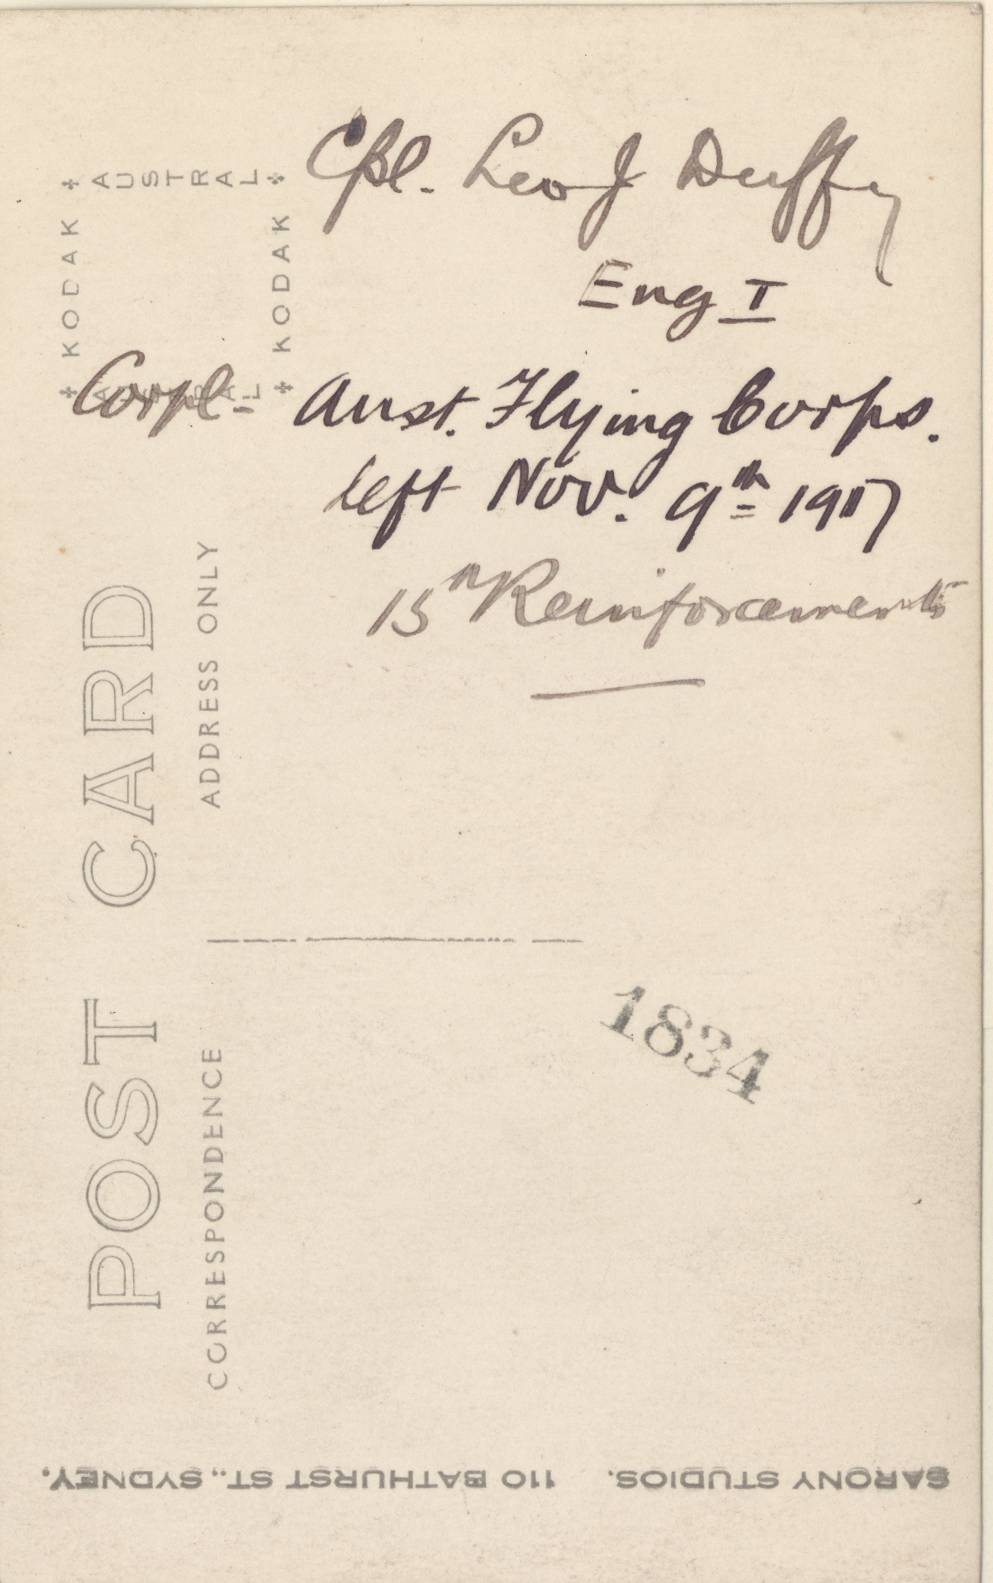 Cpl. Leo J Duffy
Eng I
Corpl- Aust. Flying Corps.
left Nov. 9th 1917
15th Reinforcements
AUSTRAL
KODAK
KODAK
AUSTRAL
POST CARD
ADDRESS ONLY
CORRESPONDENCE
1834
SARONY STUDIOS. 110 BATHURST ST., SYDNEY.